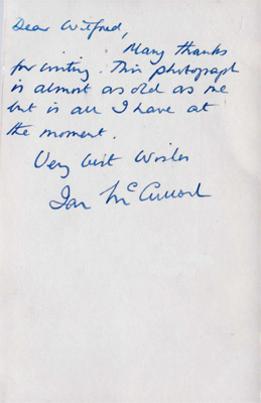 Dear Wilfred,
Many thanks
for writing. This photograph
is almost as old as me
but is all I have at
the moment.
Very best Wishes
Ian